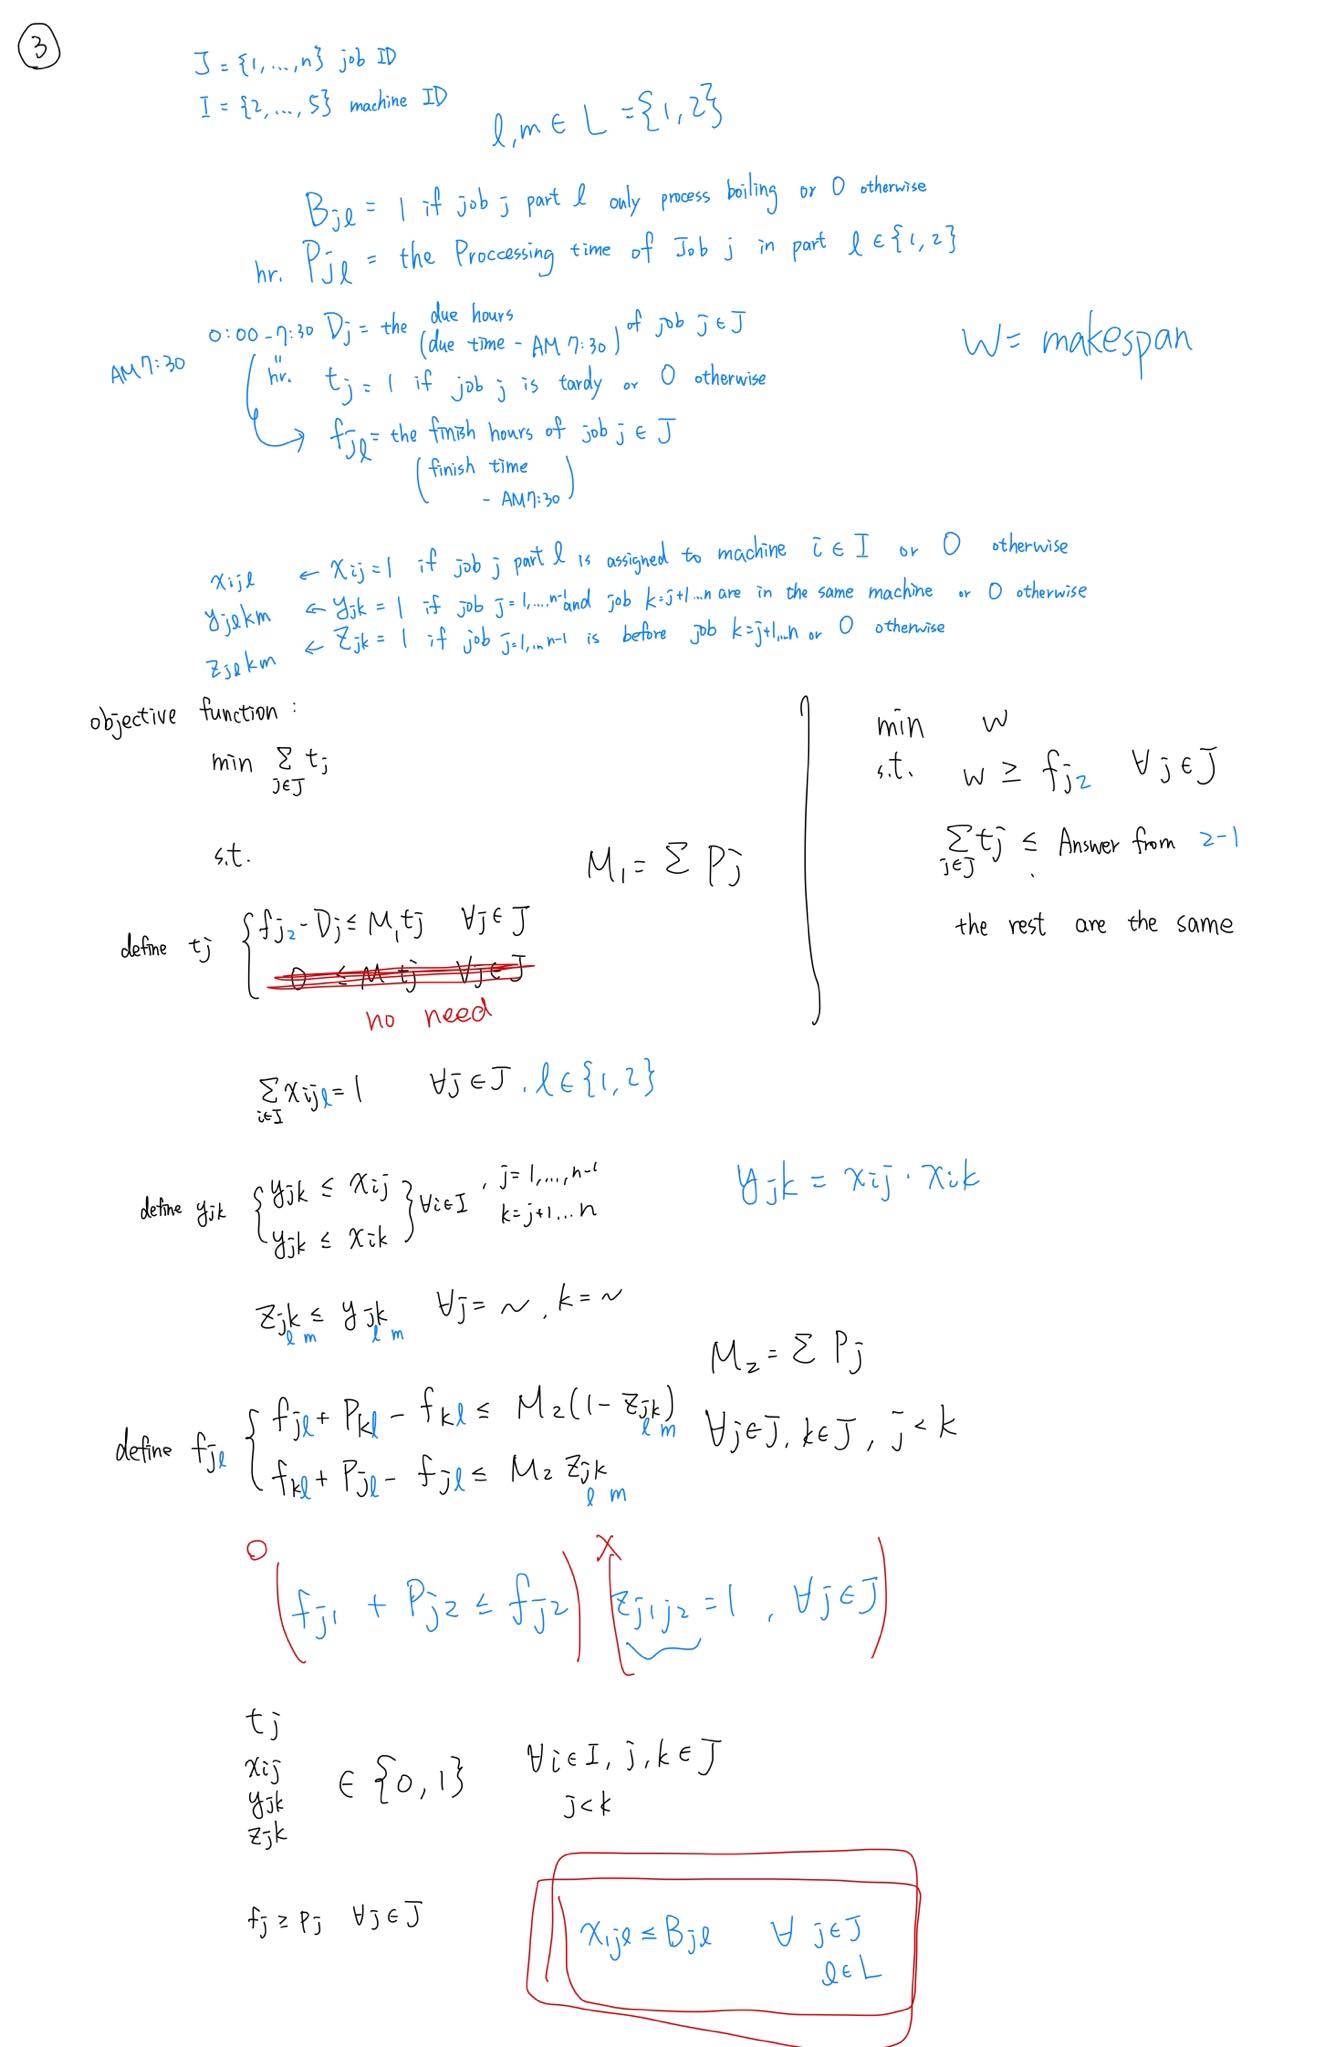 3
J = {1,...,n} job ID
I = {2,...,5} machine ID
l,m ∈ L = {1,2}
Bjl = 1 if job j part l only process boiling or 0 otherwise
hr. Pjl = the Proccessing time of Job j in part l ∈ {1,2}
AM 7:30
0:00-7:30 Dj = the due hours (due time - AM 7:30) of job j ∈ J
W = makespan
" hr. tj = 1 if job j is tardy or 0 otherwise
→ fjl = the finish hours of job j ∈ J
(finish time
- AM 7:30)
xijl ← xij = 1 if job j part l is assigned to machine i ∈ I or 0 otherwise
yjlkm ← yjk = 1 if job j=1,...n-1 and job k=j+1...n are in the same machine or 0 otherwise
zjlkm ← zjk = 1 if job j=1,...n-1 is before job k=j+1,...n or 0 otherwise
objective function :
min Σ j∈J tj
s.t.
M1 = Σ Pj
define tj { fj2 - Dj ≤ M1tj ∀j ∈ J
0 ≤ M tj ∀j ∈ J
no need
min w
s.t. w ≥ fj2 ∀j ∈ J
Σ j∈J tj ≤ Answer from 2-1
the rest are the same
Σ i∈I xijl = 1 ∀j ∈ J, l ∈ {1,2}
define yjk { yjk ≤ xij
yjk ≤ xik } ∀i∈I, j=1,...,n-1
k=j+1...n
yjk = xij · xik
zjk lm ≤ yjk lm ∀j = ~, k = ~
M2 = Σ Pj
define fjl { fjl + Pkl - fkl ≤ M2(1 - zjk lm) ∀j∈J, k∈J, j<k
fkl + Pjl - fjl ≤ M2 zjk lm
O (fj1 + Pj2 ≤ fj2) X (zj1j2 = 1, ∀j∈J)
tj
xij
yjk
zjk
∈ {0,1} ∀i∈I, j,k∈J
j<k
fj ≥ Pj ∀j∈J
x1jl ≤ Bjl ∀ j∈J
l∈L